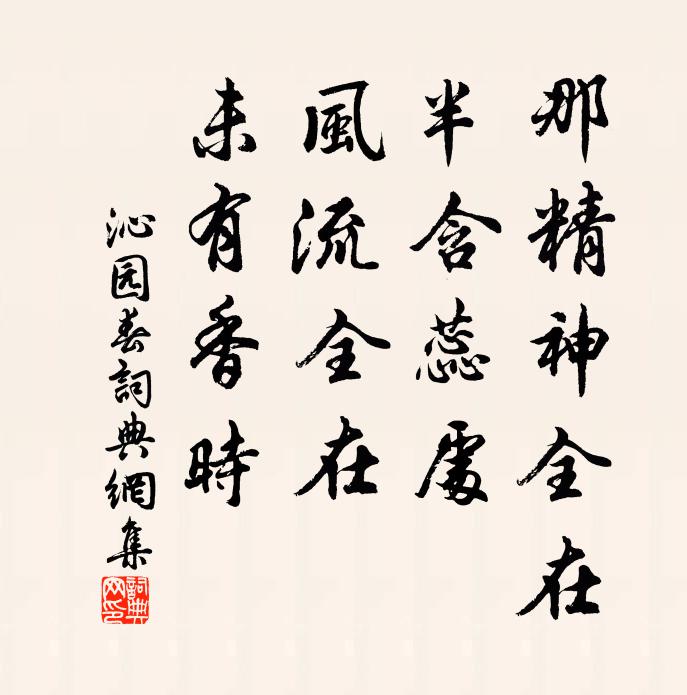 那精神全在
半含蕊處
風流全在
未有香時
沁园春詞典網集
詞典网印